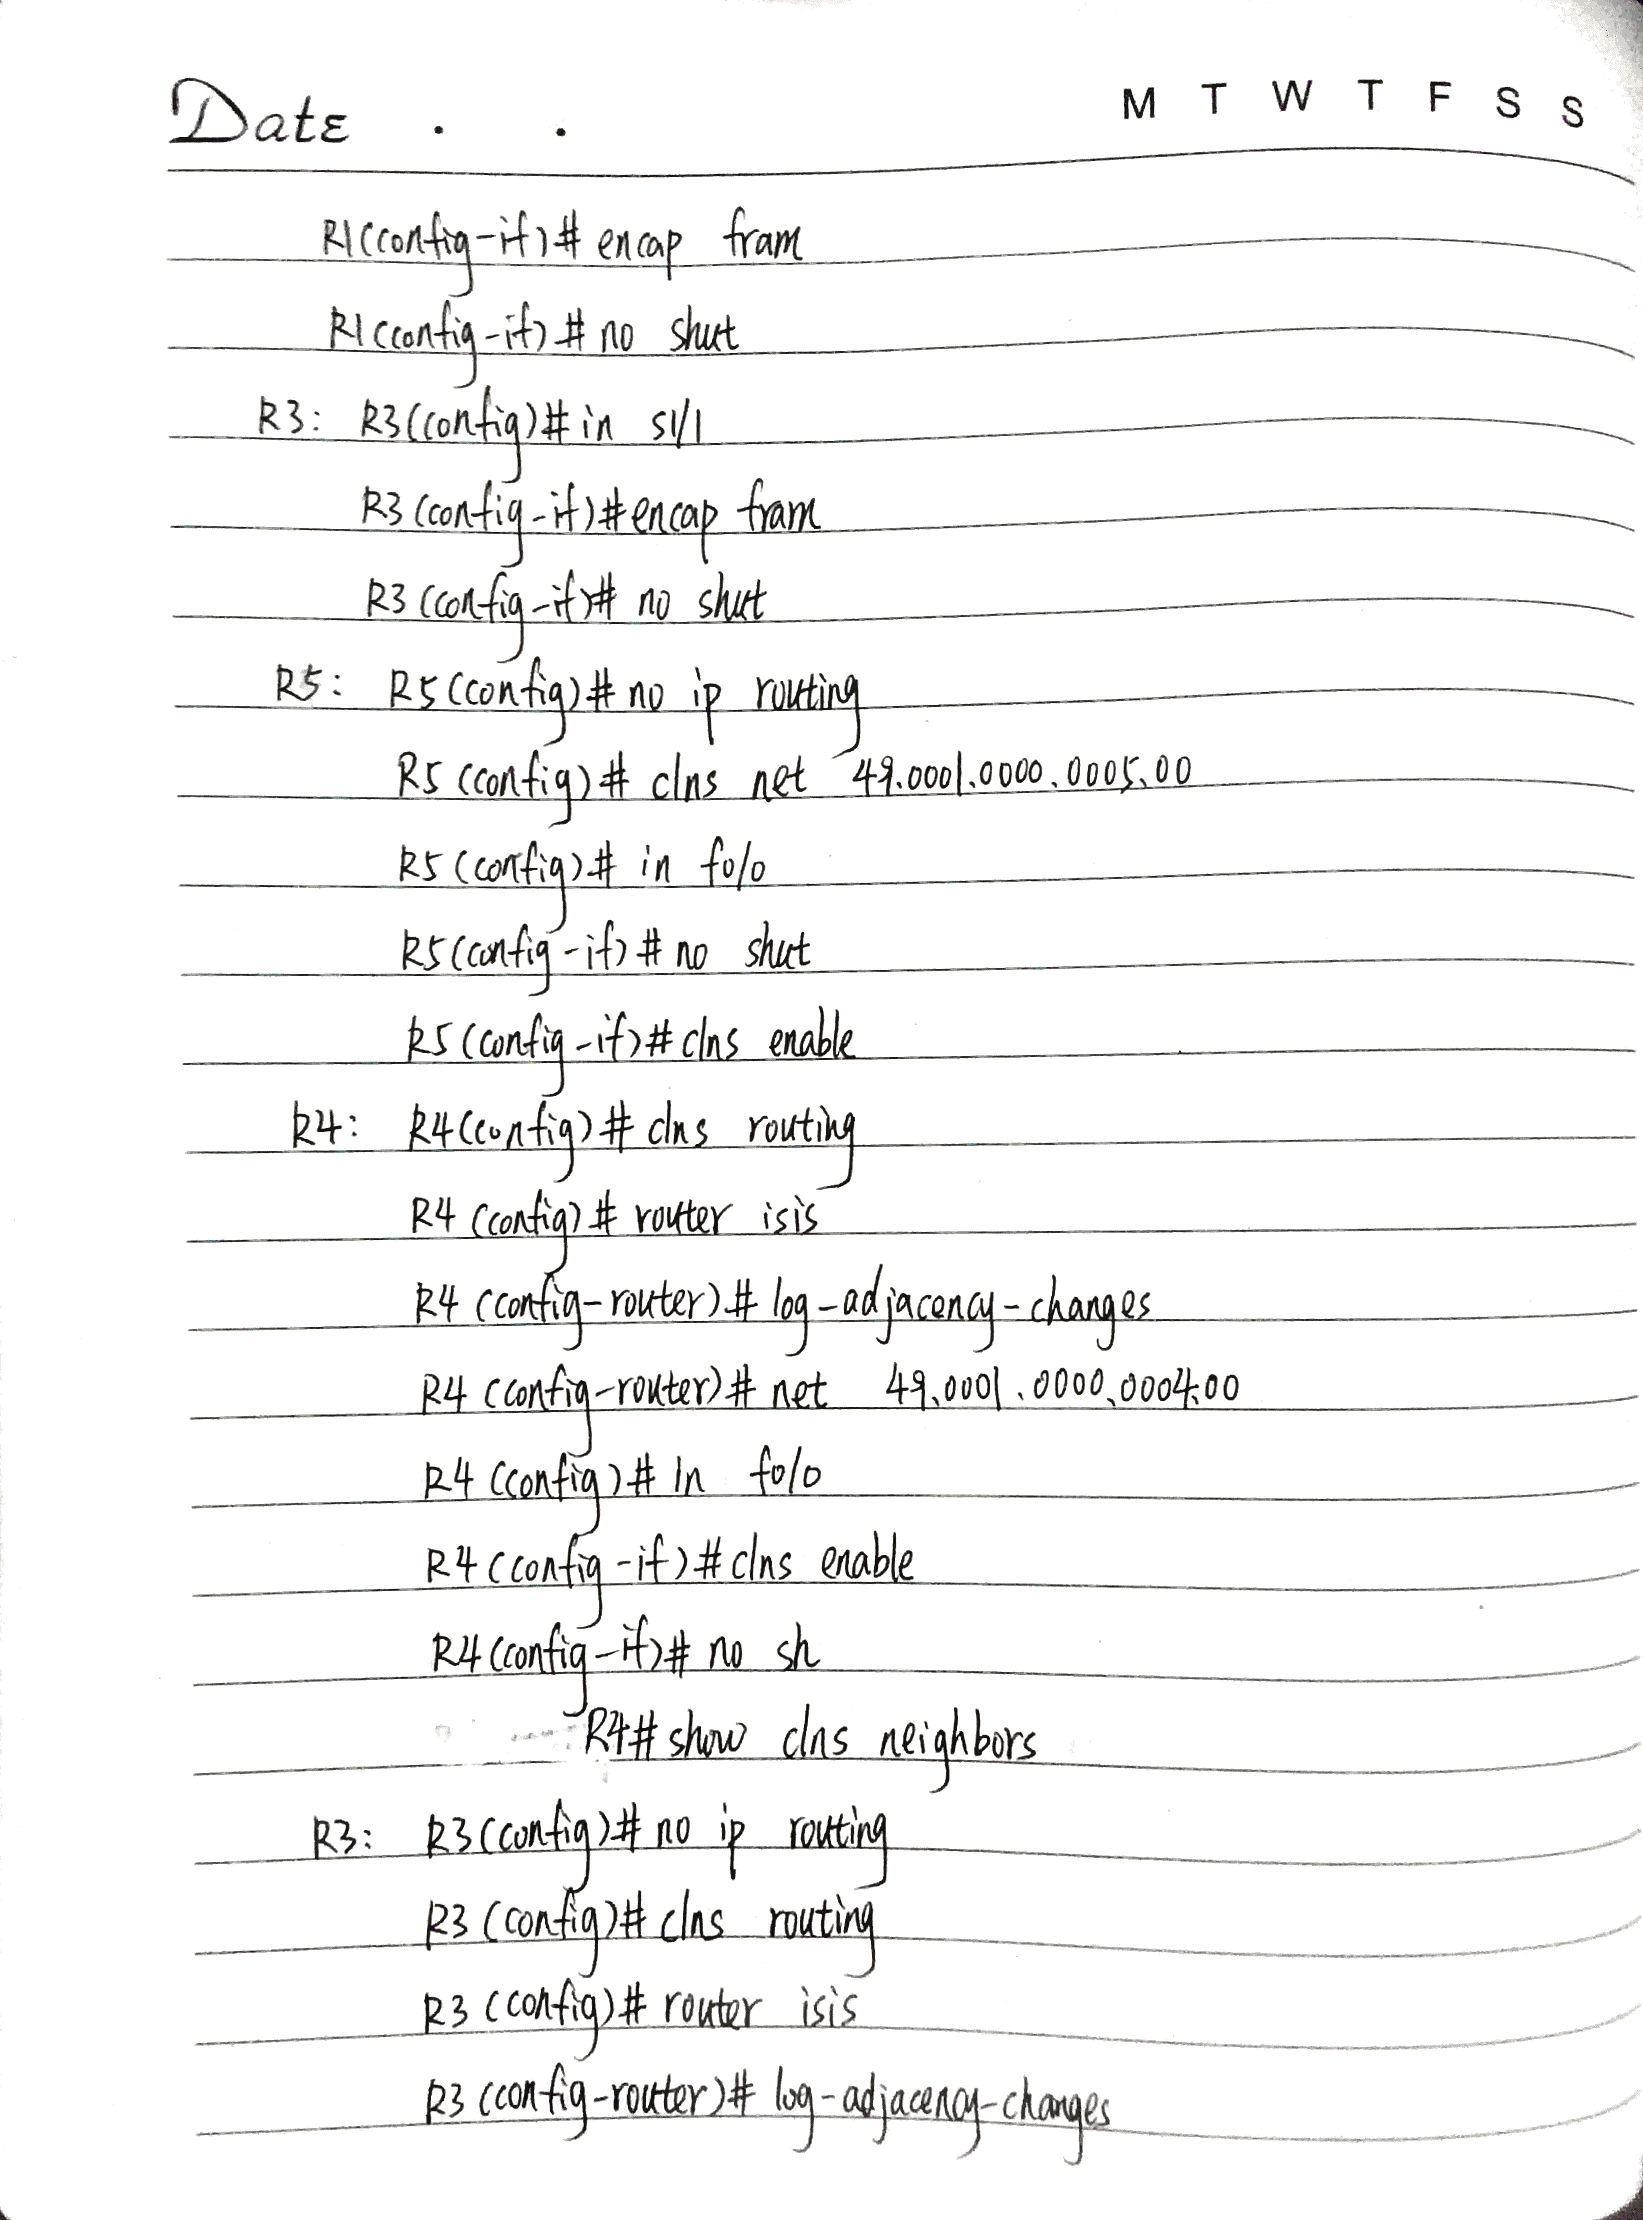 Date . .
M T W T F S S
R1(config-if)# encap fram
R1(config-if)# no shut
R3: R3(config)# in s1/1
R3(config-if)#encap fram
R3(config-if)# no shut
R5: R5(config)# no ip routing
R5(config)# clns net 49.0001.0000.0005.00
R5(config)# in f0/0
R5(config-if)# no shut
R5(config-if)# clns enable
R4: R4(config)# clns routing
R4(config)# router isis
R4(config-router)# log-adjacency-changes
R4(config-router)# net 49.0001.0000.0004.00
R4(config)# in f0/0
R4(config-if)# clns enable
R4(config-if)# no sh
R4# show clns neighbors
R3: R3(config)# no ip routing
R3(config)# clns routing
R3(config)# router isis
R3(config-router)# log-adjacency-changes